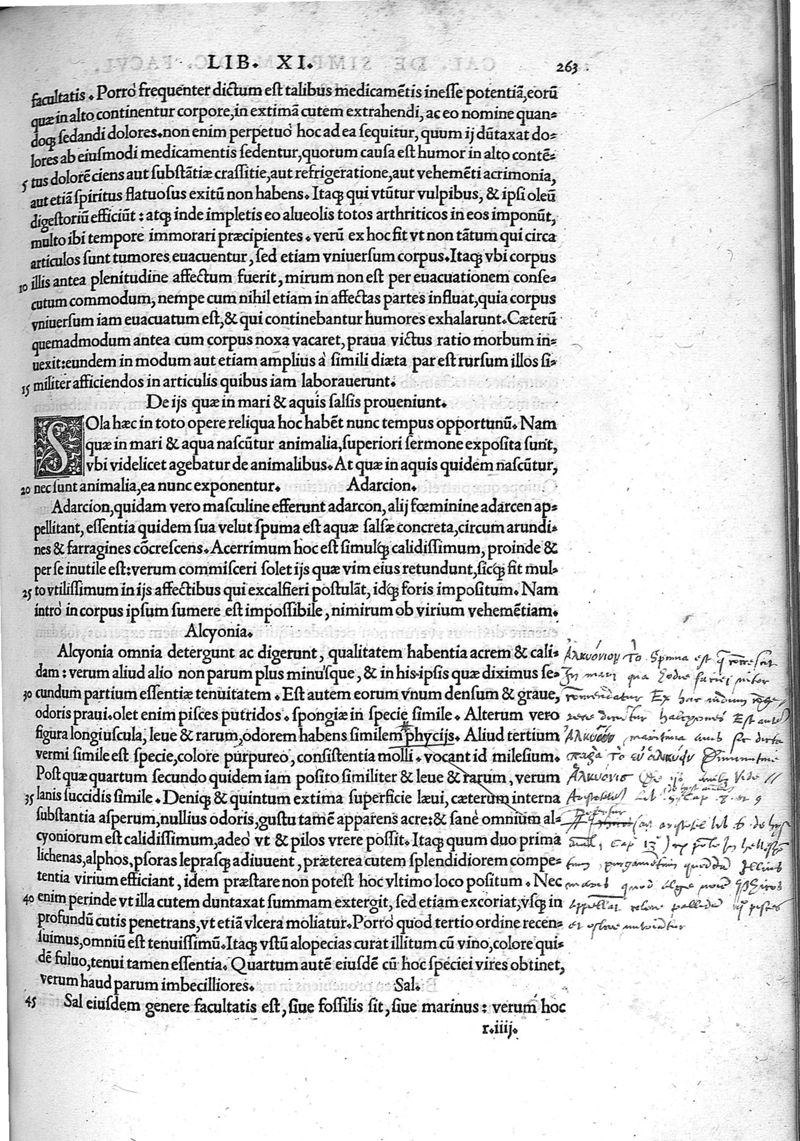 LIB. XI. 263
facultatis. Porrò frequenter dictum est talibus medicamẽtis inesse potentiã, eorũ
quæ in alto continentur corpore, in extimã cutem extrahendi, ac eo nomine quan-
doq̃ sedandi dolores. non enim perpetuo hoc ad ea sequitur, quum ij dũtaxat do-
lores ab eiusmodi medicamentis sedentur, quorum causa est humor in alto contẽ-
5 tus dolorẽ ciens aut substãtiæ crassitie, aut refrigeratione, aut vehemẽti acrimonia,
aut etiã spiritus flatuosus exitũ non habens. Itaq̃ qui vtũtur vulpibus, & ipsi oleũ
digestoriũ efficiũt: atq̃ inde impletis eo alueolis totos arthriticos in eos imponũt,
multo ibi tempore immorari præcipientes. verũ ex hoc fit vt non tãtum qui circa
articulos sunt tumores euacuentur, sed etiam vniuersum corpus. Itaq̃ vbi corpus
10 illis antea plenitudine affectum fuerit, mirum non est per euacuationem conse-
cutum commodum, nempe cum nihil etiam in affectas partes influat, quia corpus
vniuersum iam euacuatum est, & qui continebantur humores exhalarunt. Cæterũ
quemadmodum antea cum corpus noxa vacaret, praua victus ratio morbum in-
uexit: eundem in modum aut etiam amplius à simili diæta par est rursum illos si-
15 militer afficiendos in articulis quibus iam laborauerunt.
De ijs quæ in mari & aquis salsis proueniunt.
SOla hæc in toto opere reliqua hoc habẽt nunc tempus opportunũ. Nam
quæ in mari & aqua nascũtur animalia, superiori sermone exposita sunt,
vbi videlicet agebatur de animalibus. At quæ in aquis quidem nascũtur,
20 nec sunt animalia, ea nunc exponentur. Adarcion.
Adarcion, quidam vero masculine efferunt adarcon, alij fœminine adarcen ap-
pellitant, essentia quidem sua velut spuma est aquæ salsæ concreta, circum arundi-
nes & farragines cõcrescens. Acerrimum hoc est simulq̃ calidissimum, proinde &
per se inutile est: verum commisceri solet ijs quæ vim eius retundunt, sicq̃ fit mul-
25 to vtilissimum in ijs affectibus qui excalfieri postulãt, idq̃ foris impositum. Nam
intrò in corpus ipsum sumere est impossibile, nimirum ob virium vehemẽtiam.
Alcyonia.
Alcyonia omnia detergunt ac digerunt, qualitatem habentia acrem & cali-
dam: verum aliud alio non parum plus minusque, & in his ipsis quæ diximus se-
30 cundum partium essentiæ tenuitatem. Est autem eorum vnum densum & graue,
odoris praui. olet enim pisces putridos. spongiæ in specie simile. Alterum vero
figura longiuscula, leue & rarum, odorem habens similem phycijs. Aliud tertium
vermi simile est specie, colore purpureo, consistentia molli. vocant id milesium.
Post quæ quartum secundo quidem iam posito similiter & leue & rarum, verum
35 lanis succidis simile. Deniq̃ & quintum extima superficie læui, cæterum interna
substantia asperum, nullius odoris, gustu tamẽ apparens acre: & sanè omnium al-
cyoniorum est calidissimum, adeò vt & pilos vrere possit. Itaq̃ quum duo prima
lichenas, alphos, psoras leprasq̃ adiuuent, præterea cutem splendidiorem compe-
tentia virium efficiant, idem præstare non potest hoc vltimo loco positum. Nec
40 enim perinde vt illa cutem duntaxat summam extergit, sed etiam excoriat, vsq̃ in
profundũ cutis penetrans, vt etiã vlcera moliatur. Porrò quod tertio ordine recen-
suimus, omniũ est tenuissimũ. Itaq̃ vstũ alopecias curat illitum cũ vino, colore qui-
dẽ fuluo, tenui tamen essentia. Quartum autẽ eiusdẽ cũ hoc speciei vires obtinet,
verum haud parum imbecilliores. Sal.
45 Sal eiusdem genere facultatis est, siue fossilis sit, siue marinus: verum hoc
r. iiij.